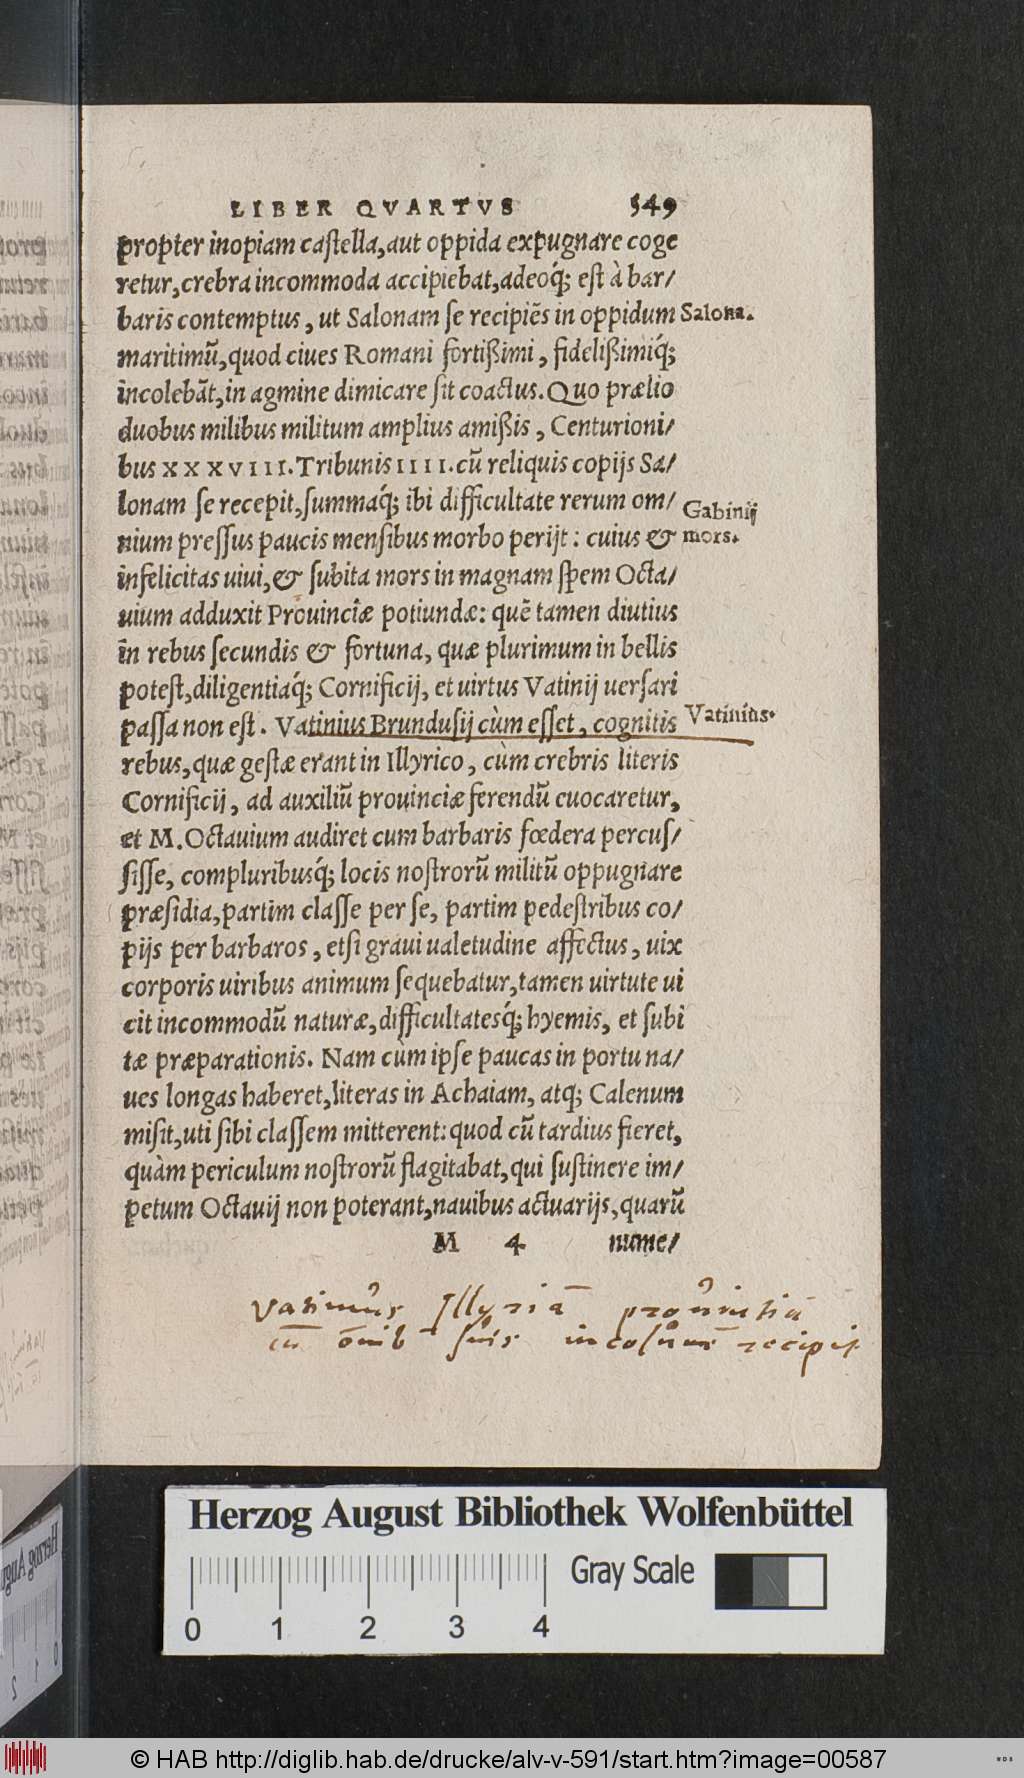 LIBER QVARTVS 549
propter inopiam castella, aut oppida expugnare coge
retur, crebra incommoda accipiebat, adeoq́; est à bar/
baris contemptus, ut Salonam se recipiẽs in oppidum Salona.
maritimũ, quod ciues Romani fortißimi, fidelißimiq́;
incolebãt, in agmine dimicare sit coactus. Quo prælio
duobus milibus militum amplius amißis, Centurioni/
bus XXXVIII. Tribunis IIII. cũ reliquis copijs Sa/
lonam se recepit, summaq́; ibi difficultate rerum om/
Gabinij
nium pressus paucis mensibus morbo perijt: cuius & mors.
infelicitas uiui, & subita mors in magnam spem Octa/
uium adduxit Prouinciæ potiundæ: quẽ tamen diutius
in rebus secundis & fortuna, quæ plurimum in bellis
potest, diligentiaq́; Cornificij, et uirtus Vatinij uersari
passa non est. Vatinius Brundusij cùm esset, cognitis Vatinius.
rebus, quæ gestæ erant in Illyrico, cùm crebris literis
Cornificij, ad auxiliũ prouinciæ ferendũ euocaretur,
et M. Octauium audiret cum barbaris fœdera percus/
sisse, compluribusq́; locis nostrorũ militũ oppugnare
præsidia, partim classe per se, partim pedestribus co/
pijs per barbaros, etsi graui ualetudine affectus, uix
corporis uiribus animum sequebatur, tamen uirtute ui
cit incommodũ naturæ, difficultatesq́; hyemis, et subi
tæ præparationis. Nam cùm ipse paucas in portu na/
ues longas haberet, literas in Achaiam, atq; Calenum
misit, uti sibi classem mitterent: quod cũ tardius fieret,
quàm periculum nostrorũ flagitabat, qui sustinere im/
petum Octauij non poterant, nauibus actuarijs, quarũ
M 4 nume/
Vatinius Illyriã prouintiã
cũ õnib suis incolumẽ recipit
Herzog August Bibliothek Wolfenbüttel
Gray Scale
0 1 2 3 4
© HAB http://diglib.hab.de/drucke/alv-v-591/start.htm?image=00587